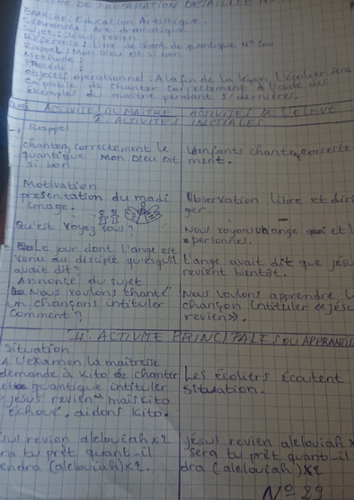 FICHE DE PREPARATION DETAILLEE N°
BRANCHE: Education Artistique
Art dramatique
Sujet: Jésus revien
Référence: Livre de chant de quantique N° 200
Rappel: Mon Dieu est si bon.
Methode:
Procédé:
Objectif opérationnel: A la fin de la leçon l'écolier sera
capable de chanter correctement à l'aide des
exemples du maître pendant
ACTIVITE DU MAITRE ACTIVITES DE L'ELEVE
I. ACTIVITES INITIALES
Rappel
chantez correctement le
quantique Mon Dieu est
si bon
Les enfants chantent correcte
ment.
Motivation
présentation du madi
image.
Observation libre et diri
ger.
Qu'est voyez vous?
Nous voyons un ange et l
personnes.
Le jour dont l'ange est
venu au disciple qu'es qu'il
avait dit?
L'ange avait dit que jésu
revient bientôt.
Annonce du sujet
Nous voulons chanté
un chansons intituler
comment?
Nous voulons apprendre la
chanson intituler «jésu
revien».
II. ACTIVITE PRINCIPALES OU APPRENTI
Situation
A l'examen la maîtresse
demande à kito de chanter
quantique intituler
jésus revien mais kito
échoue. aidons kito.
Les écoliers écoutent
situation.
sus revien aleloviah x2
ra tu prêt quant-il
endra (aleloviah) x2.
jésus revien aleloviah x
sera tu prêt quant-il
dra (aleloviah) x2.
N° 29